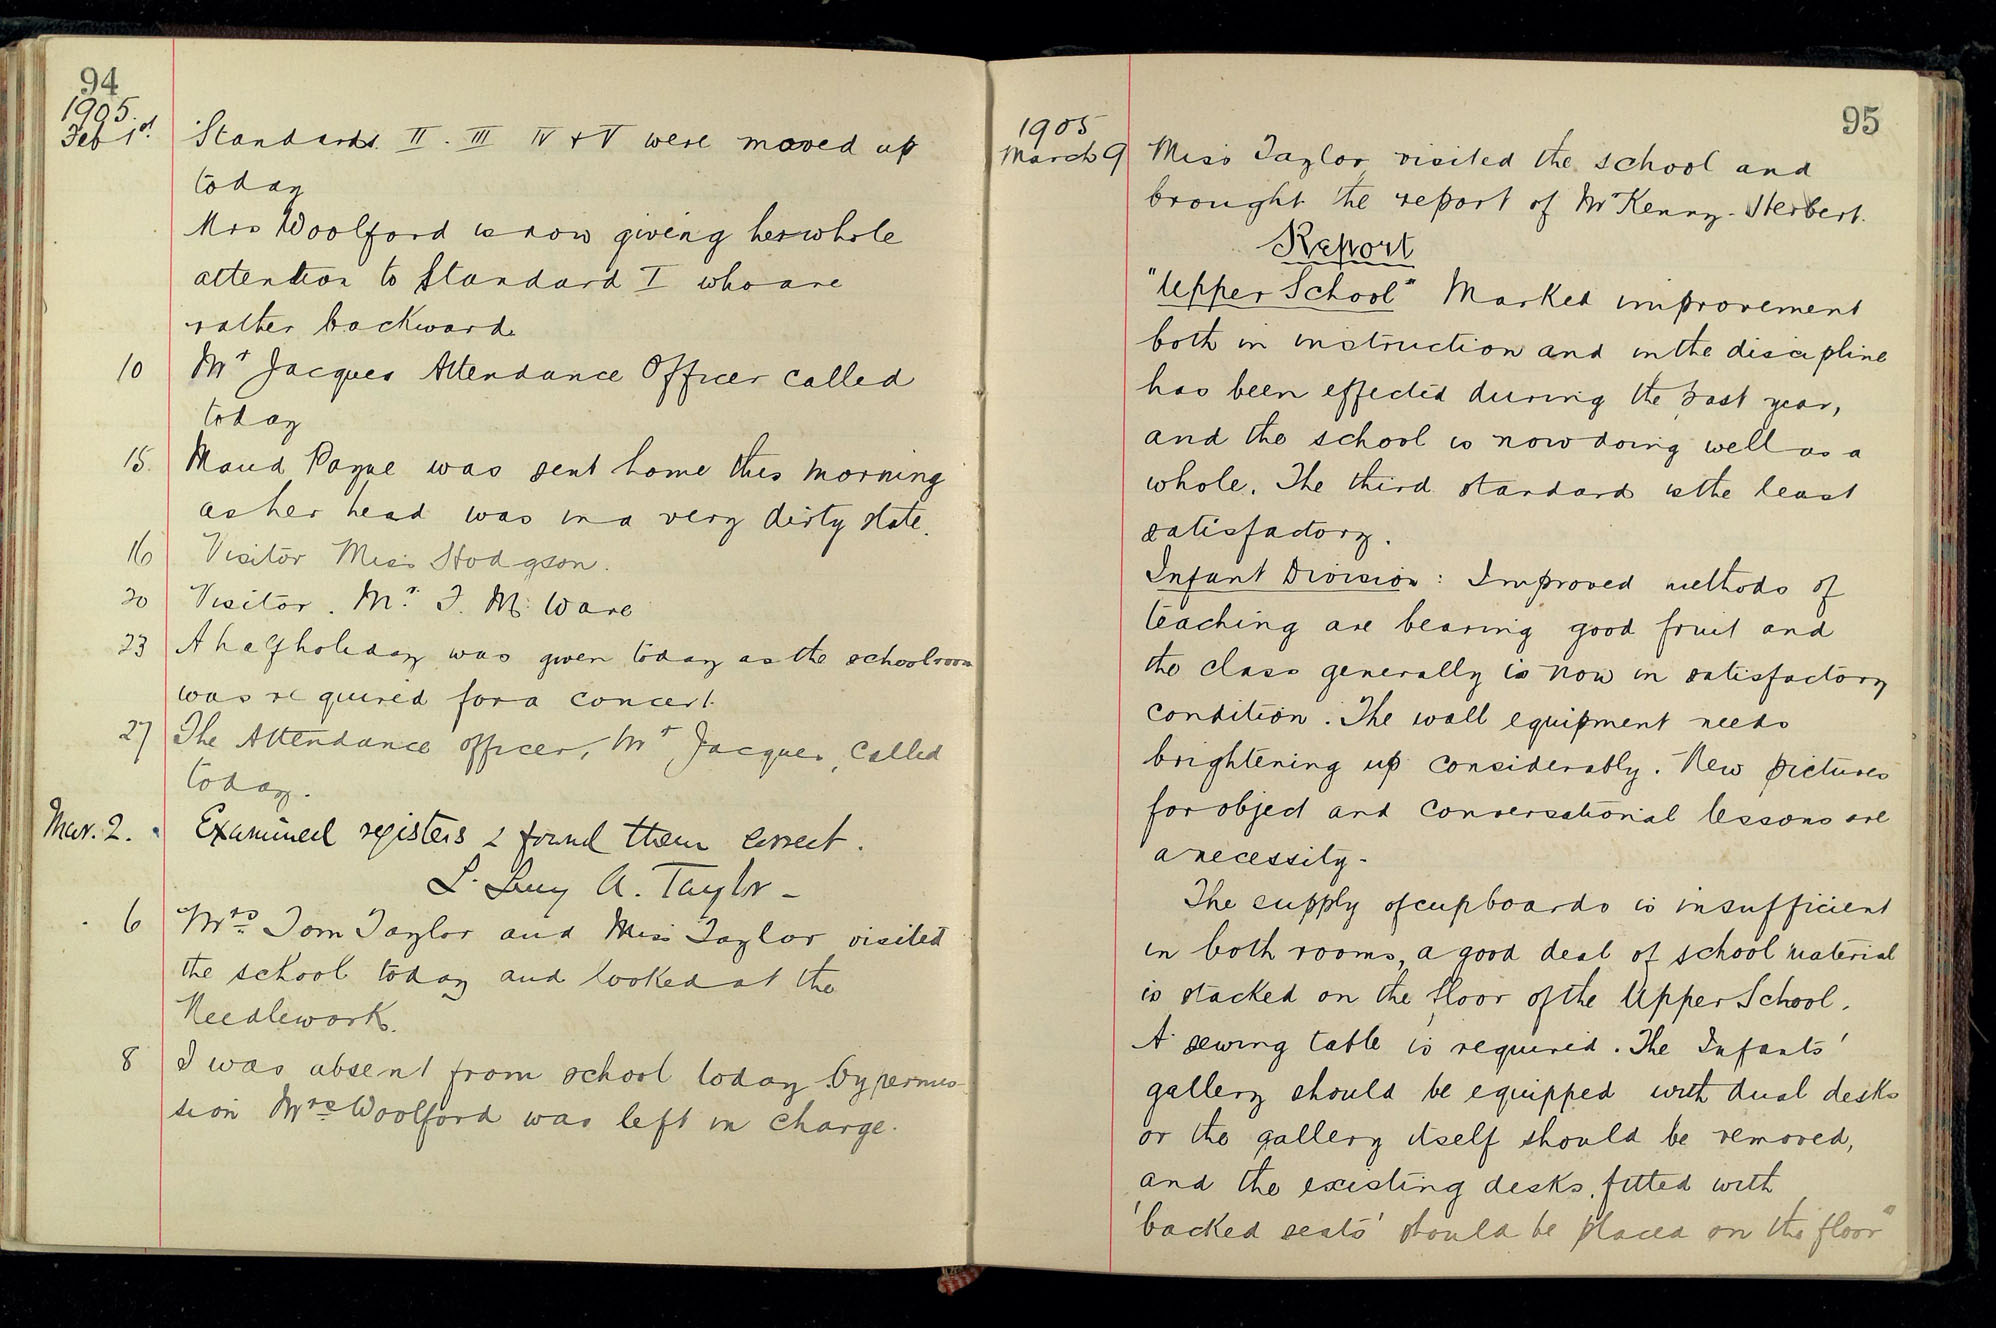 94
1905.
Feb 1st Standards II. III IV & V were moved up
today
Mrs Woolford is now giving her whole
attention to Standard I who are
rather backward.
10 Mr Jacques Attendance Officer called
today
15. Maud Payne was sent home this morning
as her head was in a very dirty state.
16 Visitor Miss Hodgson.
20 Visitor. Mr. F. M. Ware
23 A half holiday was given today as the schoolroom
was required for a concert.
27 The Attendance officer, Mr Jacques, called
today.
Mar. 2. Examined registers & found them correct.
L. Lucy A. Taylor -
6 Mrs Tom Taylor and Miss Taylor visited
the school today and looked at the
Needlework.
8 I was absent from school today by permis
sion Mrs Woolford was left in charge.
95
1905
March 9 Miss Taylor visited the school and
brought the report of Mr Kenny-Herbert.
Report
"Upper School" Marked improvement
both in instruction and in the discipline
has been effected during the past year,
and the school is now doing well as a
whole. The third standard is the least
satisfactory.
Infant Division: Improved methods of
teaching are bearing good fruit and
the class generally is now in satisfactory
condition. The wall equipment needs
brightening up considerably. New pictures
for object and conversational lessons are
a necessity.
The supply of cupboards is insufficient
in both rooms, a good deal of school material
is stacked on the floor of the Upper School.
A sewing table is required. The Infants'
gallery should be equipped with dual desks
or the gallery itself should be removed,
and the existing desks, fitted with
'backed seats' should be placed on the floor"